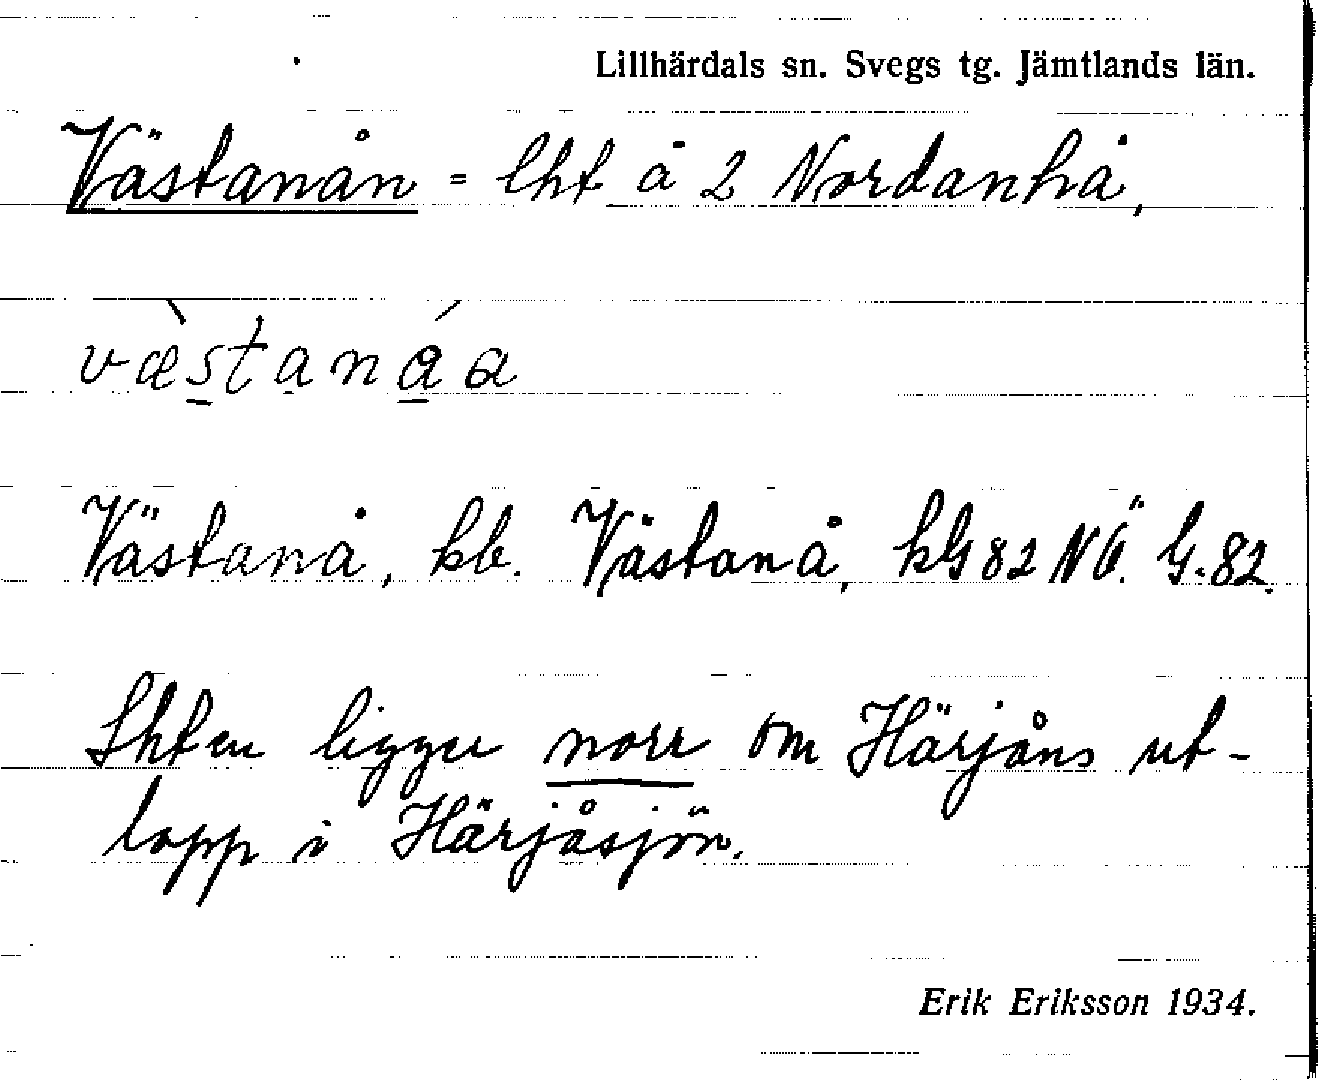 Lillhärdals sn. Svegs tg. Jämtlands län.
Västanån = lht å 2 Nordanhå,
væ̀stanáa
Västanå, kb. Västanå, kG82NÖ. G.82.
Lhten ligger norr om Härjåns ut-
lopp i Härjåsjön.
Erik Eriksson 1934.